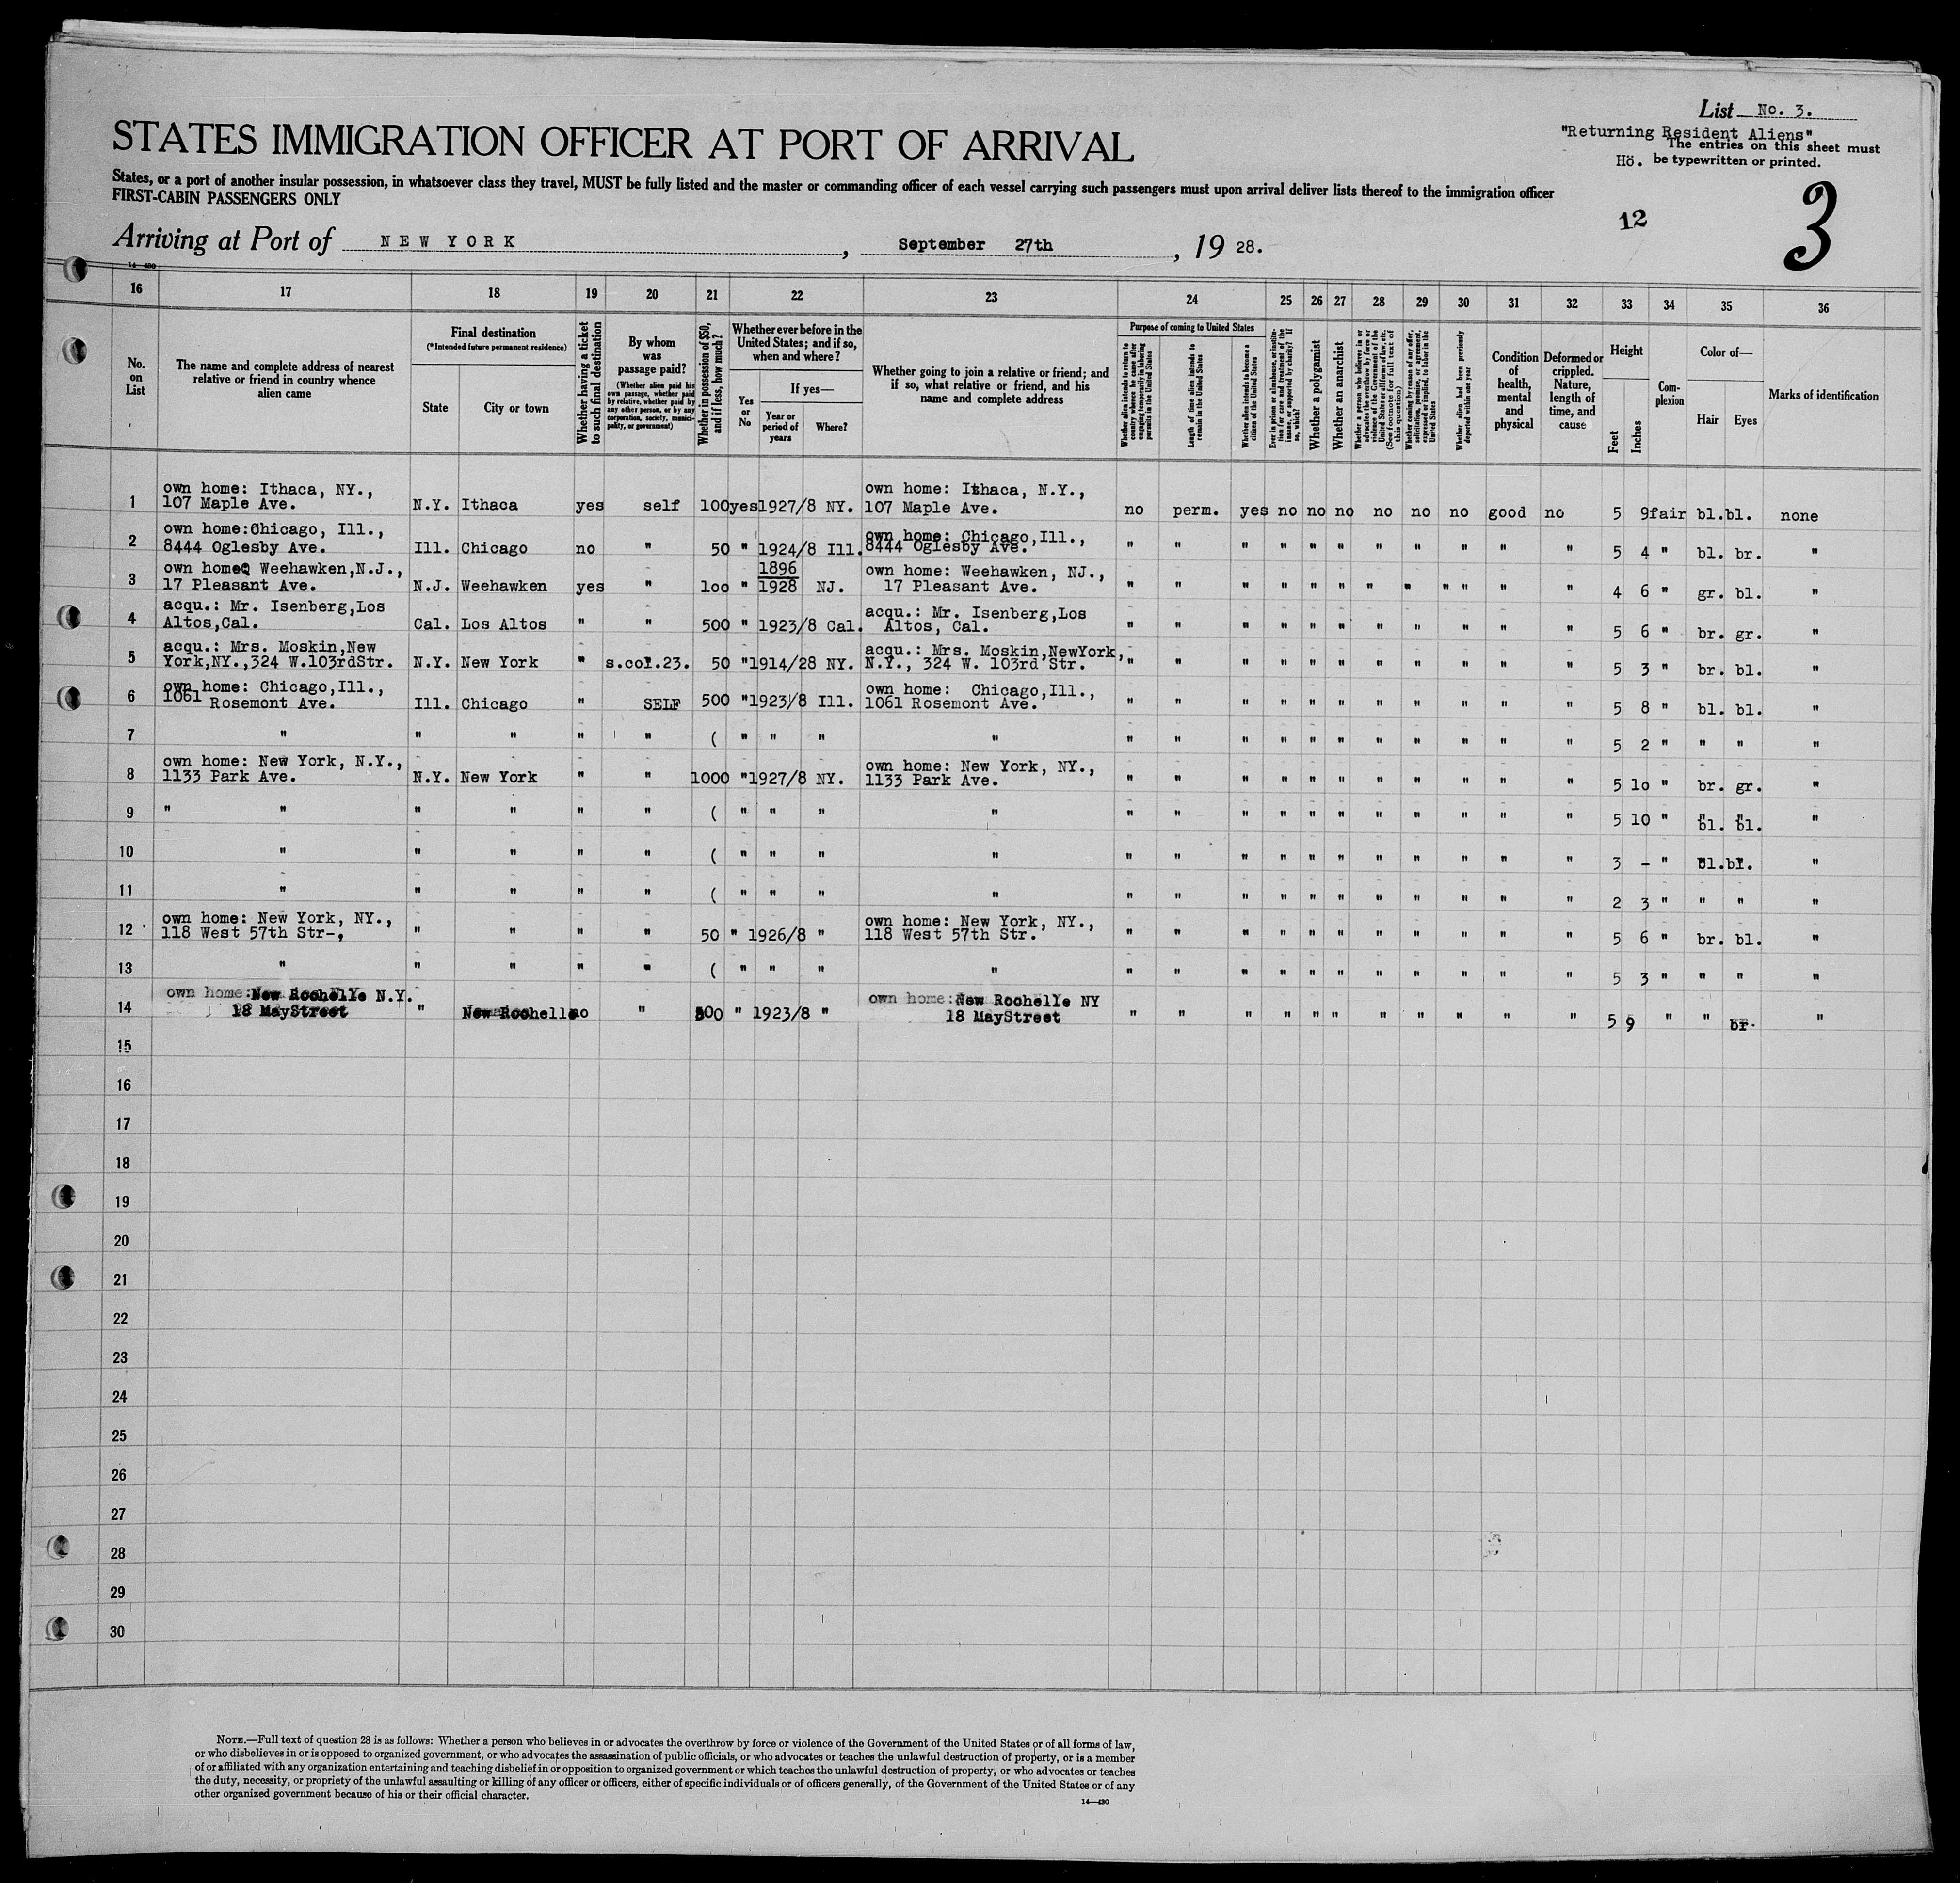 List No. 3.
"Returning Resident Aliens"
The entries on this sheet must
Hö. be typewritten or printed.
STATES IMMIGRATION OFFICER AT PORT OF ARRIVAL
States, or a port of another insular possession, in whatsoever class they travel, MUST be fully listed and the master or commanding officer of each vessel carrying such passengers must upon arrival deliver lists thereof to the immigration officer
FIRST-CABIN PASSENGERS ONLY
12
3
Arriving at Port of NEW YORK, September 27th, 19 28.
14-430
16 17 18 19 20 21 22 23 24 25 26 27 28 29 30 31 32 33 34 35 36
No. on List
The name and complete address of nearest relative or friend in country whence alien came
Final destination
(*Intended future permanent residence)
State
City or town
Whether having a ticket to such final destination
By whom was passage paid?
(Whether alien paid his own passage, whether paid by relative, whether paid by any other person, or by any corporation, society, municipality, or government)
Whether in possession of $50, and if less, how much?
Whether ever before in the United States; and if so, when and where?
Yes or No
If yes—
Year or period of years
Where?
Whether going to join a relative or friend; and if so, what relative or friend, and his name and complete address
Purpose of coming to United States
Whether alien intends to return to country whence he came after engaging temporarily in laboring pursuits in the United States
Length of time alien intends to remain in the United States
Whether alien intends to become a citizen of the United States
Ever in prison or almshouse, or institution for care and treatment of the insane, or supported by charity? If so, which?
Whether a polygamist
Whether an anarchist
Whether a person who believes in or advocates the overthrow by force or violence of the Government of the United States or all forms of law, etc. (See footnote for full text of this question)
Whether coming by reason of any offer, solicitation, promise, or agreement, expressed or implied, to labor in the United States
Whether alien had been previously deported within one year
Condition of health, mental and physical
Deformed or crippled. Nature, length of time, and cause
Height
Feet
Inches
Complexion
Color of—
Hair
Eyes
Marks of identification
1 own home: Ithaca, NY., 107 Maple Ave. N.Y. Ithaca yes self 100 yes 1927/8 NY. own home: Ithaca, N.Y., 107 Maple Ave. no perm. yes no no no no no no good no 5 9 fair bl. bl. none
2 own home: Chicago, Ill., 8444 Oglesby Ave. Ill. Chicago no " 50 " 1924/8 Ill. own home: Chicago, Ill., 8444 Oglesby Ave. " " " " " " " " " " " 5 4 " bl. br. "
3 own home Weehawken, N.J., 17 Pleasant Ave. N.J. Weehawken yes " 100 " 1896 1928 NJ. own home: Weehawken, NJ., 17 Pleasant Ave. " " " " " " " " " " " " 4 6 " gr. bl. "
4 acqu.: Mr. Isenberg, Los Altos, Cal. Cal. Los Altos " " 500 " 1923/8 Cal. acqu.: Mr. Isenberg, Los Altos, Cal. " " " " " " " " " " " 5 6 " br. gr. "
5 acqu.: Mrs. Moskin, New York, NY., 324 W. 103rd Str. N.Y. New York " s.col.23. 50 " 1914/28 NY. acqu.: Mrs. Moskin, NewYork, N.Y., 324 W. 103rd Str. " " " " " " " " " " " 5 3 " br. bl. "
6 own home: Chicago, Ill., 1061 Rosemont Ave. Ill. Chicago " SELF 500 " 1923/8 Ill. own home: Chicago, Ill., 1061 Rosemont Ave. " " " " " " " " " " " 5 8 " bl. bl. "
7 " " " " " ( " " " " " " " " " " " " " " " 5 2 " " " "
8 own home: New York, N.Y., 1133 Park Ave. N.Y. New York " " 1000 " 1927/8 NY. own home: New York, NY., 1133 Park Ave. " " " " " " " " " " " 5 10 " br. gr. "
9 " " " " " " ( " " " " " " " " " " " " " " " 5 10 " bl. bl. "
10 " " " " " ( " " " " " " " " " " " " " " " 3 - " bl. bl. "
11 " " " " " ( " " " " " " " " " " " " " " " 2 3 " " " "
12 own home: New York, NY., 118 West 57th Str-, " " " " 50 " 1926/8 " own home: New York, NY., 118 West 57th Str. " " " " " " " " " " " 5 6 " br. bl. "
13 " " " " " ( " " " " " " " " " " " " " " " 5 3 " " " "
14 own home: New Rochelle N.Y. 18 MayStreet " New Rochelle no " 500 " 1923/8 " own home: New Rochelle NY 18 MayStreet " " " " " " " " " " " 5 9 " " br. "
15
16
17
18
19
20
21
22
23
24
25
26
27
28
29
30
NOTE.—Full text of question 28 is as follows: Whether a person who believes in or advocates the overthrow by force or violence of the Government of the United States or of all forms of law,
or who disbelieves in or is opposed to organized government, or who advocates the assassination of public officials, or who advocates or teaches the unlawful destruction of property, or is a member
of or affiliated with any organization entertaining and teaching disbelief in or opposition to organized government or which teaches the unlawful destruction of property, or who advocates or teaches
the duty, necessity, or propriety of the unlawful assaulting or killing of any officer or officers, either of specific individuals or of officers generally, of the Government of the United States or of any
other organized government because of his or their official character.
14—430